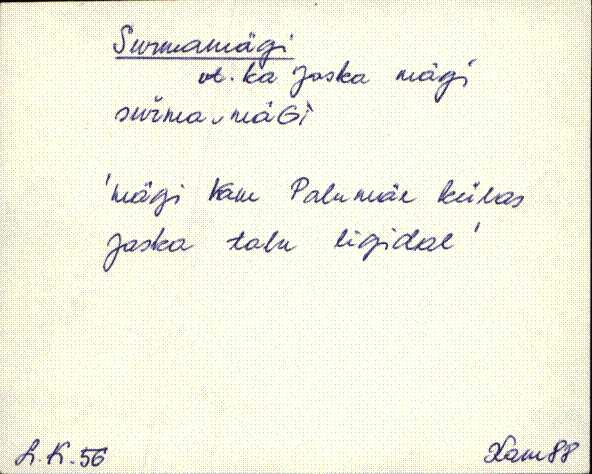 Surmamägi
vt. ka Jaska mägi
surma mäGi
'mägi Kam Palumäe külas
Jaska talu ligidal'
L. K. 56
Kam 88